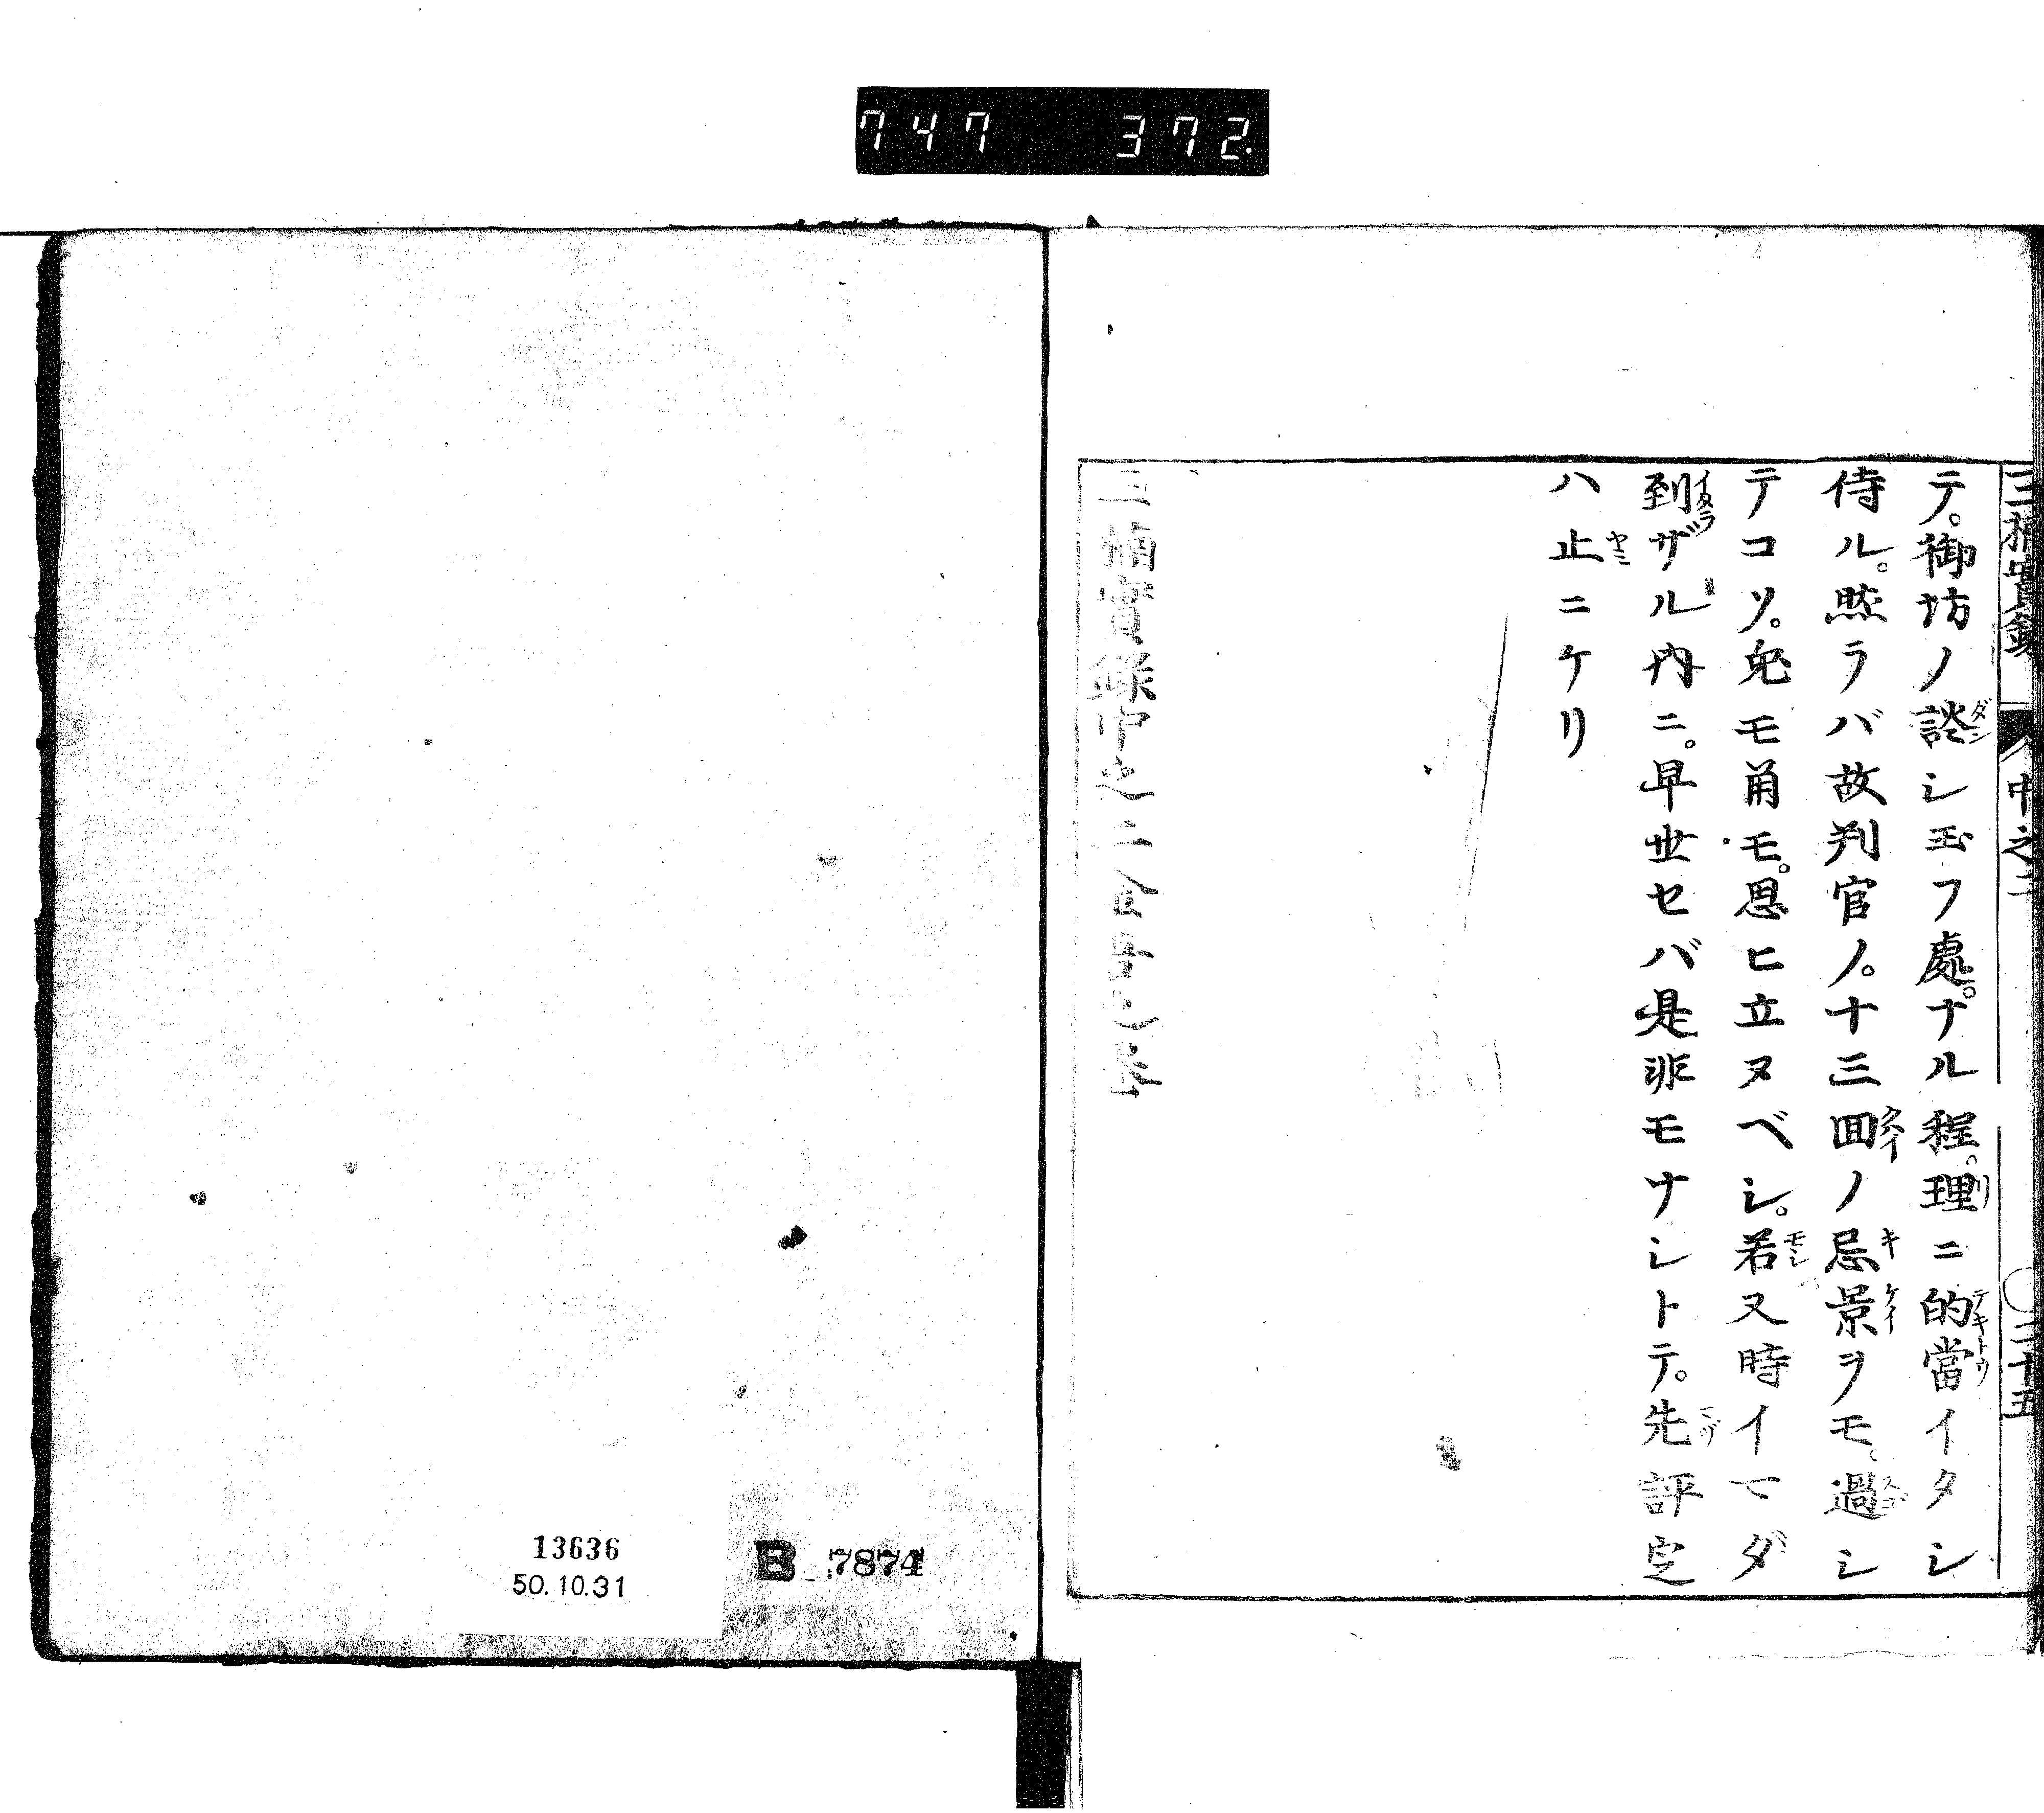 747 372.
三楠實録 中之二 二十五
テ。御坊ノ談シ玉フ處。ナル程。理ニ的當イタシ
侍ル。然ラバ故判官ノ。十三回ノ忌景ヲモ過シ
テコソ。兔モ角モ。思ヒ立ヌベシ。若又時イマダ
到ザル内ニ。早世セバ是非モナシトテ。先評定
ハ止ニケリ
三楠實録中之二
13636
50.10.31
B 7874